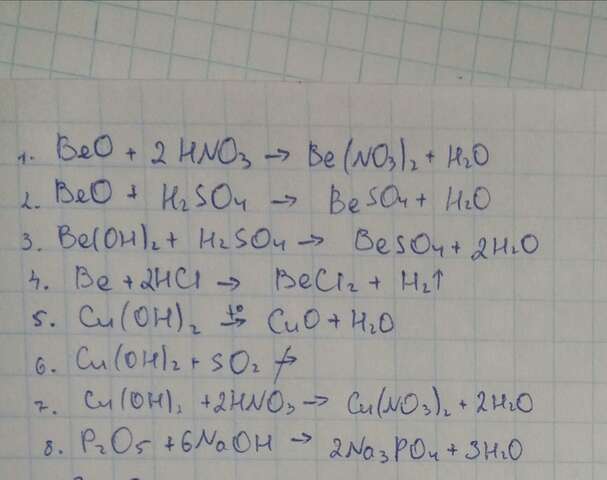 1. BeO + 2 HNO₃ → Be(NO₃)₂ + H₂O
2. BeO + H₂SO₄ → BeSO₄ + H₂O
3. Be(OH)₂ + H₂SO₄ → BeSO₄ + 2H₂O
4. Be + 2HCl → BeCl₂ + H₂↑
5. Cu(OH)₂ t°→ CuO + H₂O
6. Cu(OH)₂ + SO₂ ↛
7. Cu(OH)₂ + 2HNO₃ → Cu(NO₃)₂ + 2H₂O
8. P₂O₅ + 6NaOH → 2Na₃PO₄ + 3H₂O